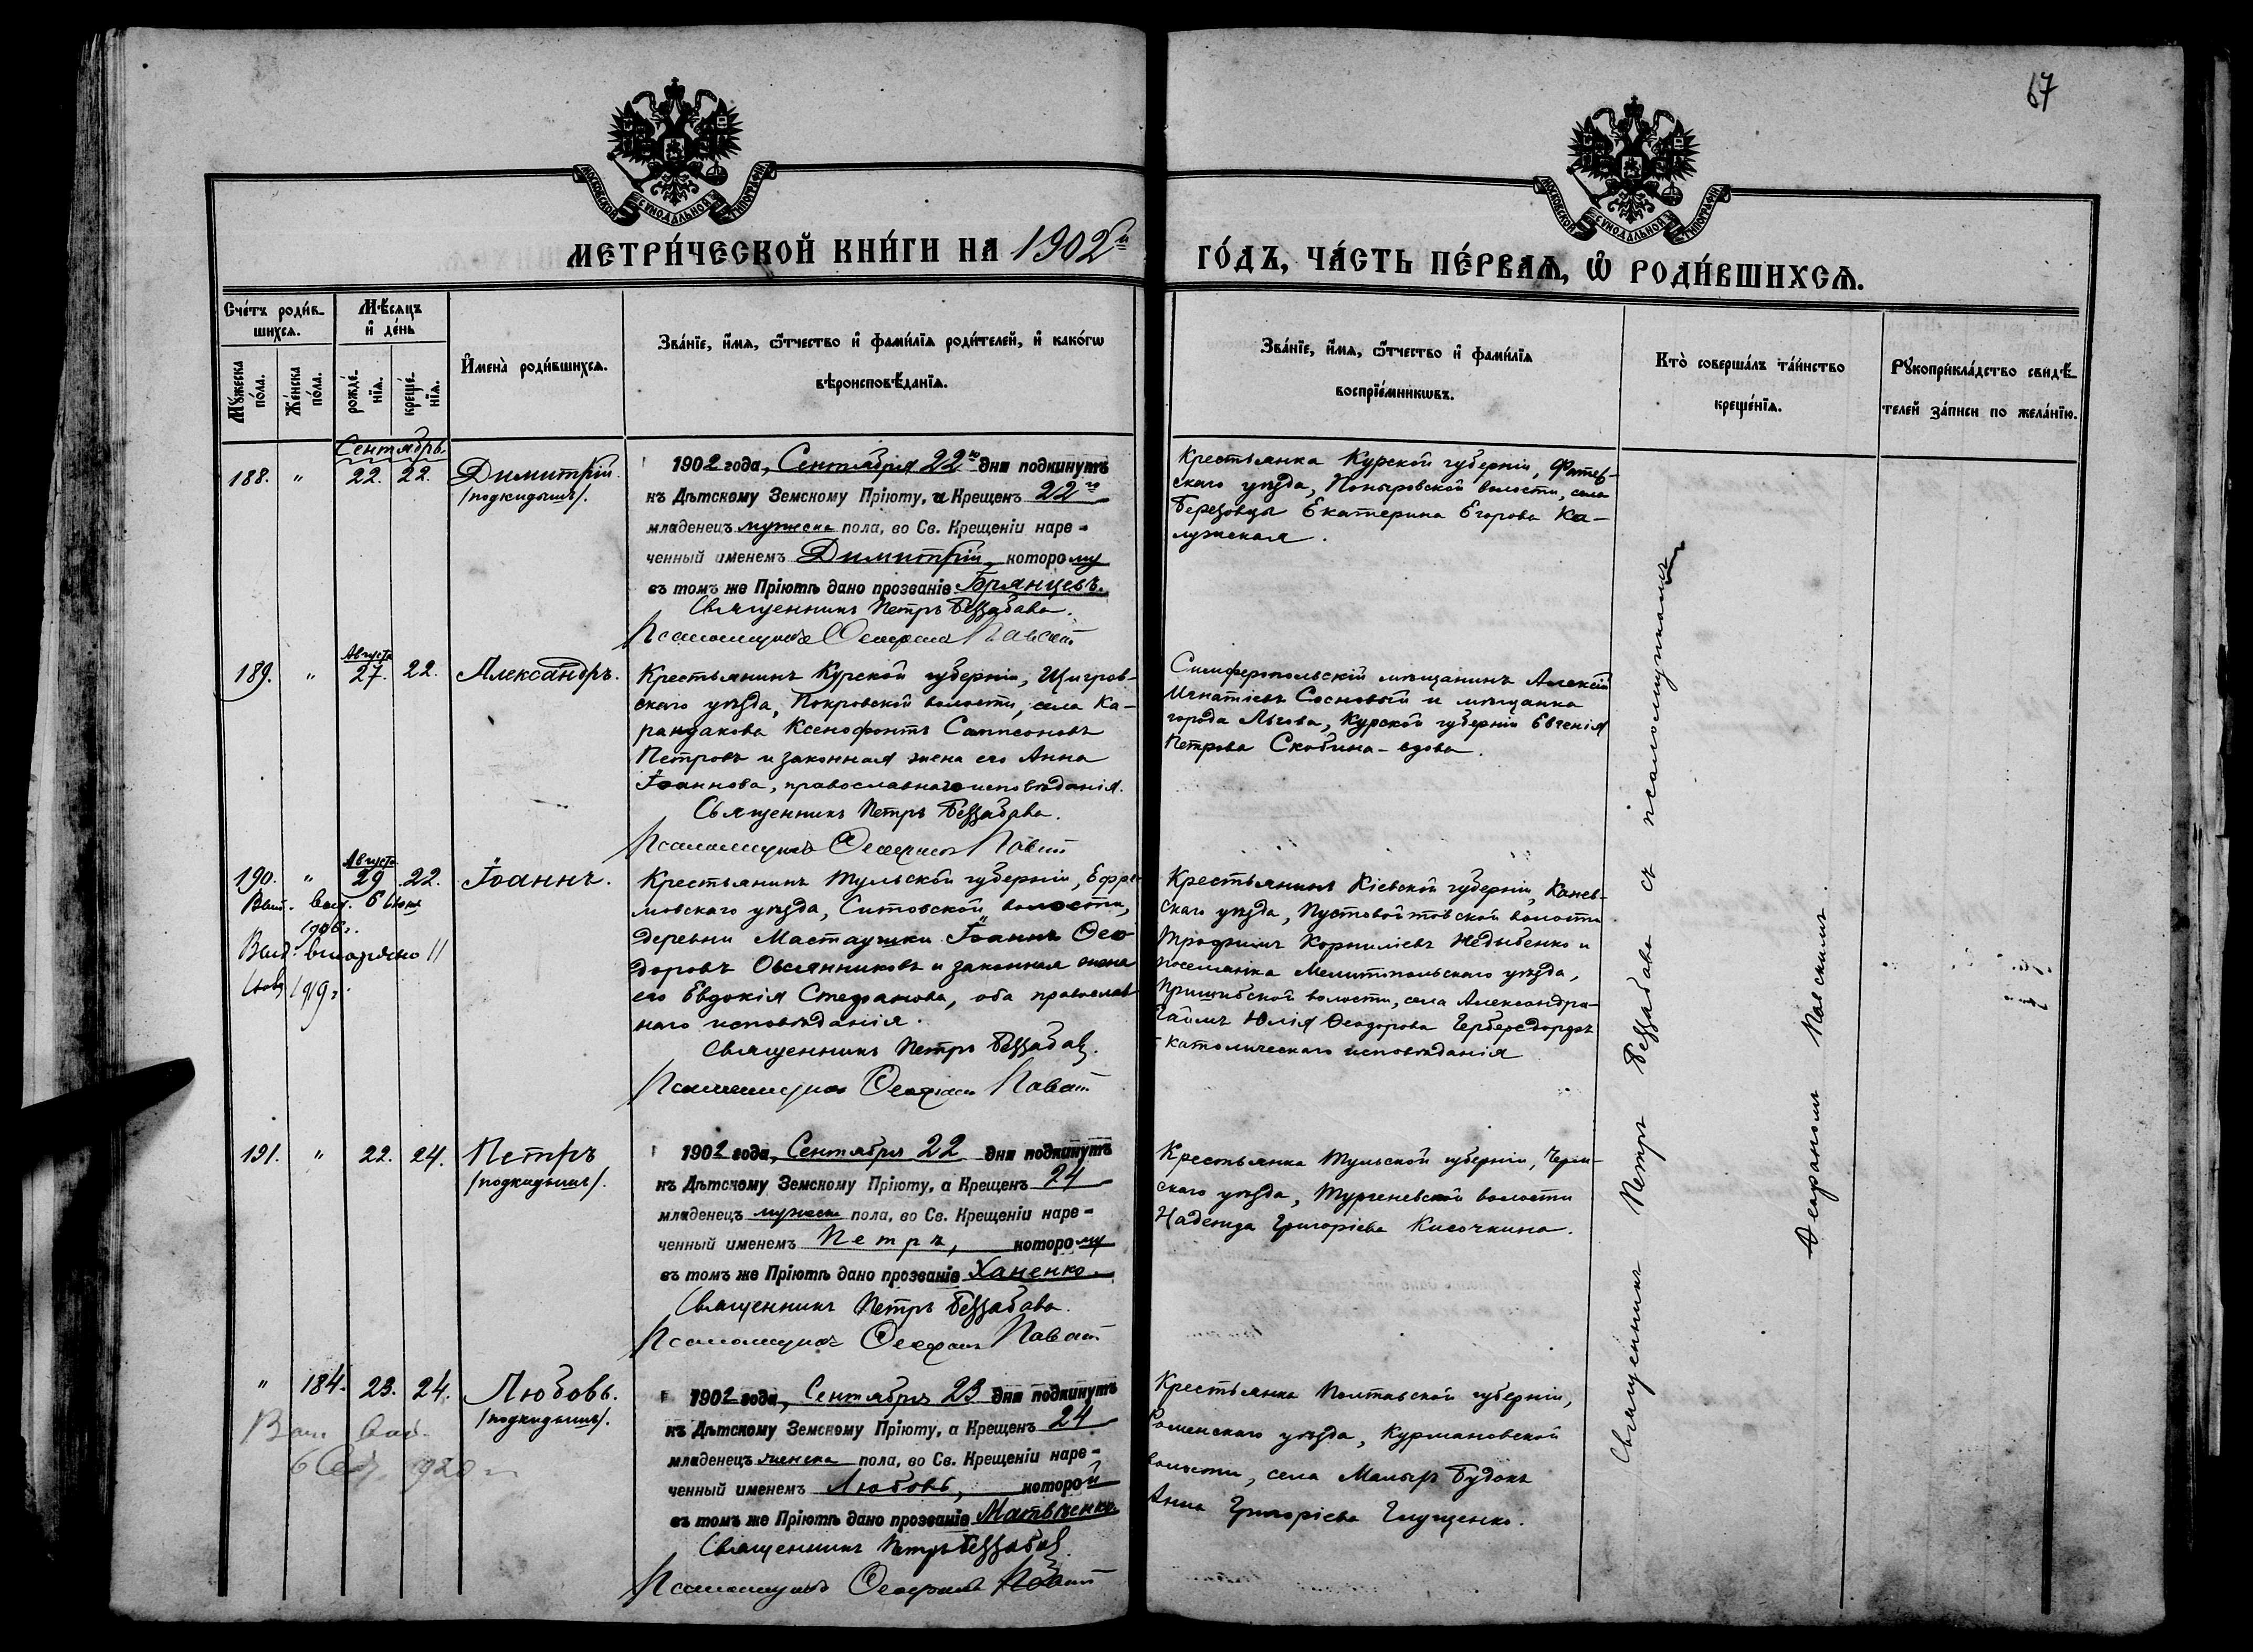 67
МОСКОВСКОЙ СѴНОДАЛЬНОЙ ТИПОГРАФІИ
МОСКОВСКОЙ СѴНОДАЛЬНОЙ ТИПОГРАФІИ
МЕТРИ́ЧЕСКОЙ КНИ́ГИ НА 1902й
ГО́ДЪ, ЧА́СТЬ ПЕ́РВАѦ, Ѡ РОДИ́ВШИХСѦ.
Сче́тъ роди́в-
шихсѧ.
Мѣ́сѧцъ
и҆ де́нь
Мꙋ́жеска
по́ла.
Же́нска
по́ла.
рожде́-
нїѧ.
креще́-
нїѧ.
И҆мена̀ роди́вшихсѧ.
Зва́нїе, и҆́мѧ, ѻ҆́тчество и҆ фами́лїѧ роди́телей, и҆ како́гѡ
вѣроисповѣ́данїѧ.
Зва́нїе, и҆́мѧ, ѻ҆́тчество и҆ фами́лїѧ
воспрїе́мникѡвъ.
Кто̀ соверша́лъ та́инство
креще́нїѧ.
Рꙋкоприкла́дство свидѣ́-
телей за́писи по жела́нїю.
Сентябрь.
188. " 22. 22. Димитрій
/подкидышъ/.
1902 года, Сентября 22го дня подкинутъ
къ Дѣтскому Земскому Пріюту, и Крещенъ 22го
младенецъ мужеска пола, во Св. Крещеніи наре-
ченный именемъ Димитрій, которому
въ томъ же Пріютѣ дано прозваніе Брянцевъ.
Священникъ Петръ Беззабава.
Псаломщикъ Феофанъ Павскій
Крестьянка Курской губерніи, Фатеж-
скаго уѣзда, Поныровской волости, села
Березовцы Екатерина Егорова Ка-
лужская.
189. " Августа 27. 22. Александръ.
Крестьянинъ Курской губерніи, Щигров-
скаго уѣзда, Покровской волости, села Ка-
рандакова Ксенофонтъ Сампсоновъ
Петровъ и законная жена его Анна
Іоаннова, православнаго исповѣданія.
Священникъ Петръ Беззабава.
Псаломщикъ Феофанъ Павскій
Симферопольскій мѣщанинъ Алексій
Игнатіевъ Сосновый и мѣщанка
города Льгова, Курской губерніи Евгенія
Петрова Скобина - вдова.
190. " Августа 29 22. Іоаннъ.
1906 г.
Выд. вторично 11
1919 г.
Крестьянинъ Тульской губерніи, Ефре-
мовскаго уѣзда, Ситовской волости,
деревни Мастаушки Іоаннъ Фео-
доровъ Овсянниковъ и законная жена
его Евдокія Стефанова, оба православ
наго исповѣданія.
Священникъ Петръ Беззабава.
Псаломщикъ Феофанъ Павскій
Крестьянинъ Кіевской губерніи, Канев-
скаго уѣзда, Пустовойтовской волости
Трофимъ Корниліевъ Недыбенко и
поселянка Мелитопольскаго уѣзда,
Пришибской волости, села Александра-
Гаймъ Юлія Феодорова Герберсдорфъ
- католическаго исповѣданія
191. " 22. 24. Петръ
/подкидышъ/.
1902 года, Сентября 22 дня подкинутъ
къ Дѣтскому Земскому Пріюту, а Крещенъ 24
младенецъ мужеска пола, во Св. Крещеніи наре-
ченный именемъ Петръ, которому
въ томъ же Пріютѣ дано прозваніе Ханенко.
Священникъ Петръ Беззабава.
Псаломщикъ Феофанъ Павскій
Крестьянка Тульской губерніи, Черн-
скаго уѣзда, Тургеневской волости
Надежда Григоріева Кисочкина.
" 184. 23. 24. Любовь.
/подкидышъ/.
1902 года, Сентября 23 дня подкинутъ
къ Дѣтскому Земскому Пріюту, а Крещенъ 24
младенецъ женска пола, во Св. Крещеніи наре-
ченный именемъ Любовь, которой
въ томъ же Пріютѣ дано прозваніе Матвѣенко.
Священникъ Петръ Беззабава
Псаломщикъ Феофанъ Павскій
Крестьянка Полтавской губерніи,
Роменскаго уѣзда, Курмановской
волости, села Малыхъ Будокъ
Анна Григоріева Глущенко.
Священникъ Петръ Беззабава съ псаломщикомъ
Феофаномъ Павскимъ.